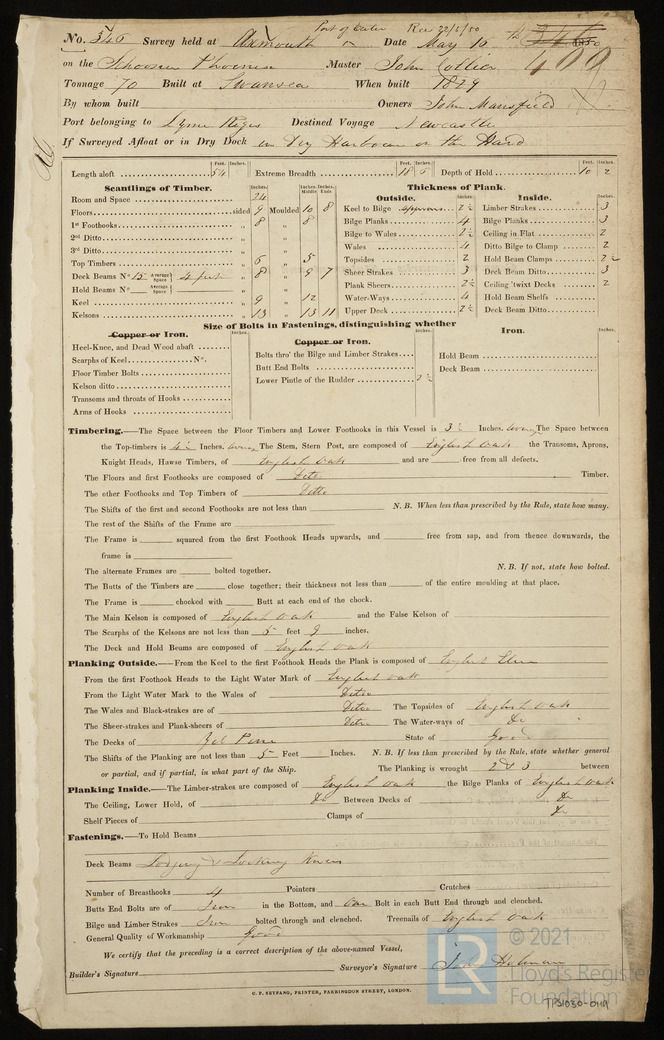 Port of Exeter Rec 22/5/50
No. 346 Survey held at Axmouth Date May 16th 1850
409
on the Schooner Phoenix Master John Collier
Tonnage 70 Built at Swansea When built 1829
By whom built Owners John Mansfield
Port belonging to Lyme Regis Destined Voyage Newcastle
If Surveyed Afloat or in Dry Dock in Dry Harbour on the Hard
Feet. Inches. Feet. Inches. Feet. Inches.
Length aloft 54 Extreme Breadth 18 6 Depth of Hold 10 2
Scantlings of Timber. Inches. Inches. Inches. Middle Ends Thickness of Plank.
Outside. Inches. Inside. Inches.
Room and Space 24
Floors sided 9 Moulded 10 8 Keel to Bilge 2½ Limber Strakes 3
1st Foothooks „ 8 „ 8 Bilge Planks 4 Bilge Planks 3
2nd Ditto „ „ Bilge to Wales 2½ Ceiling in Flat 2
3rd Ditto „ „ Wales 4 Ditto Bilge to Clamp 2
Top Timbers „ 6 „ 5 Topsides 2 Hold Beam Clamps 2½
Deck Beams No. 15 Average Space 4 feet „ 8 „ 9 7 Sheer Strakes 3 Deck Beam Ditto 3
Hold Beams No. Average Space „ „ Plank Sheers 2½ Ceiling 'twixt Decks 2
Keel „ 9 „ 12 Water-Ways 4 Hold Beam Shelfs
Kelsons „ 13 „ 13 11 Upper Deck 2½ Deck Beam Ditto
Size of Bolts in Fastenings, distinguishing whether
Copper or Iron. Inches. Copper or Iron. Inches. Iron. Inches.
Heel-Knee, and Dead Wood abaft
Scarphs of Keel No. Bolts thro' the Bilge and Limber Strakes Hold Beam
Floor Timber Bolts Butt End Bolts Deck Beam
Kelson ditto Lower Pintle of the Rudder 2½
Transoms and throats of Hooks
Arms of Hooks
Timbering.—The Space between the Floor Timbers and Lower Foothooks in this Vessel is 3½ Inches. The Space between
the Top-timbers is 4½ Inches. The Stem, Stern Post, are composed of English Oak the Transoms, Aprons,
Knight Heads, Hawse Timbers, of English Oak and are free from all defects.
The Floors and first Foothooks are composed of Ditto Timber.
The other Foothooks and Top Timbers of Ditto
The Shifts of the first and second Foothooks are not less than N. B. When less than prescribed by the Rule, state how many.
The rest of the Shifts of the Frame are
The Frame is squared from the first Foothook Heads upwards, and free from sap, and from thence downwards, the
frame is
The alternate Frames are bolted together. N. B. If not, state how bolted.
The Butts of the Timbers are close together; their thickness not less than of the entire moulding at that place.
The Frame is chocked with Butt at each end of the chock.
The Main Kelson is composed of English Oak and the False Kelson of
The Scarphs of the Kelsons are not less than 5 feet 9 inches.
The Deck and Hold Beams are composed of English Oak
Planking Outside.—From the Keel to the first Foothook Heads the Plank is composed of English Elm
From the first Foothook Heads to the Light Water Mark of English Oak
From the Light Water Mark to the Wales of Ditto
The Wales and Black-strakes are of Ditto The Topsides of English Oak
The Sheer-strakes and Plank-sheers of Ditto The Water-ways of Do
The Decks of Yel Pine State of Good
The Shifts of the Planking are not less than 5 Feet Inches. N. B. If less than prescribed by the Rule, state whether general
or partial, and if partial, in what part of the Ship. The Planking is wrought 2 & 3 between
Planking Inside.—The Limber-strakes are composed of English Oak the Bilge Planks of English Oak
The Ceiling, Lower Hold, of Do Between Decks of Do
Shelf Pieces of Clamps of Do
Fastenings.—To Hold Beams
Deck Beams Lodging & Locking Knees
Number of Breasthooks 4 Pointers Crutches
Butts End Bolts are of Iron in the Bottom, and One Bolt in each Butt End through and clenched.
Bilge and Limber Strakes Iron bolted through and clenched. Treenails of English Oak
General Quality of Workmanship Good
We certify that the preceding is a correct description of the above-named Vessel,
Builder's Signature Surveyor's Signature Holman
C. F. SEYFANG, PRINTER, FARRINGDON STREET, LONDON.
© 2021
LR Lloyd's Register
Foundation